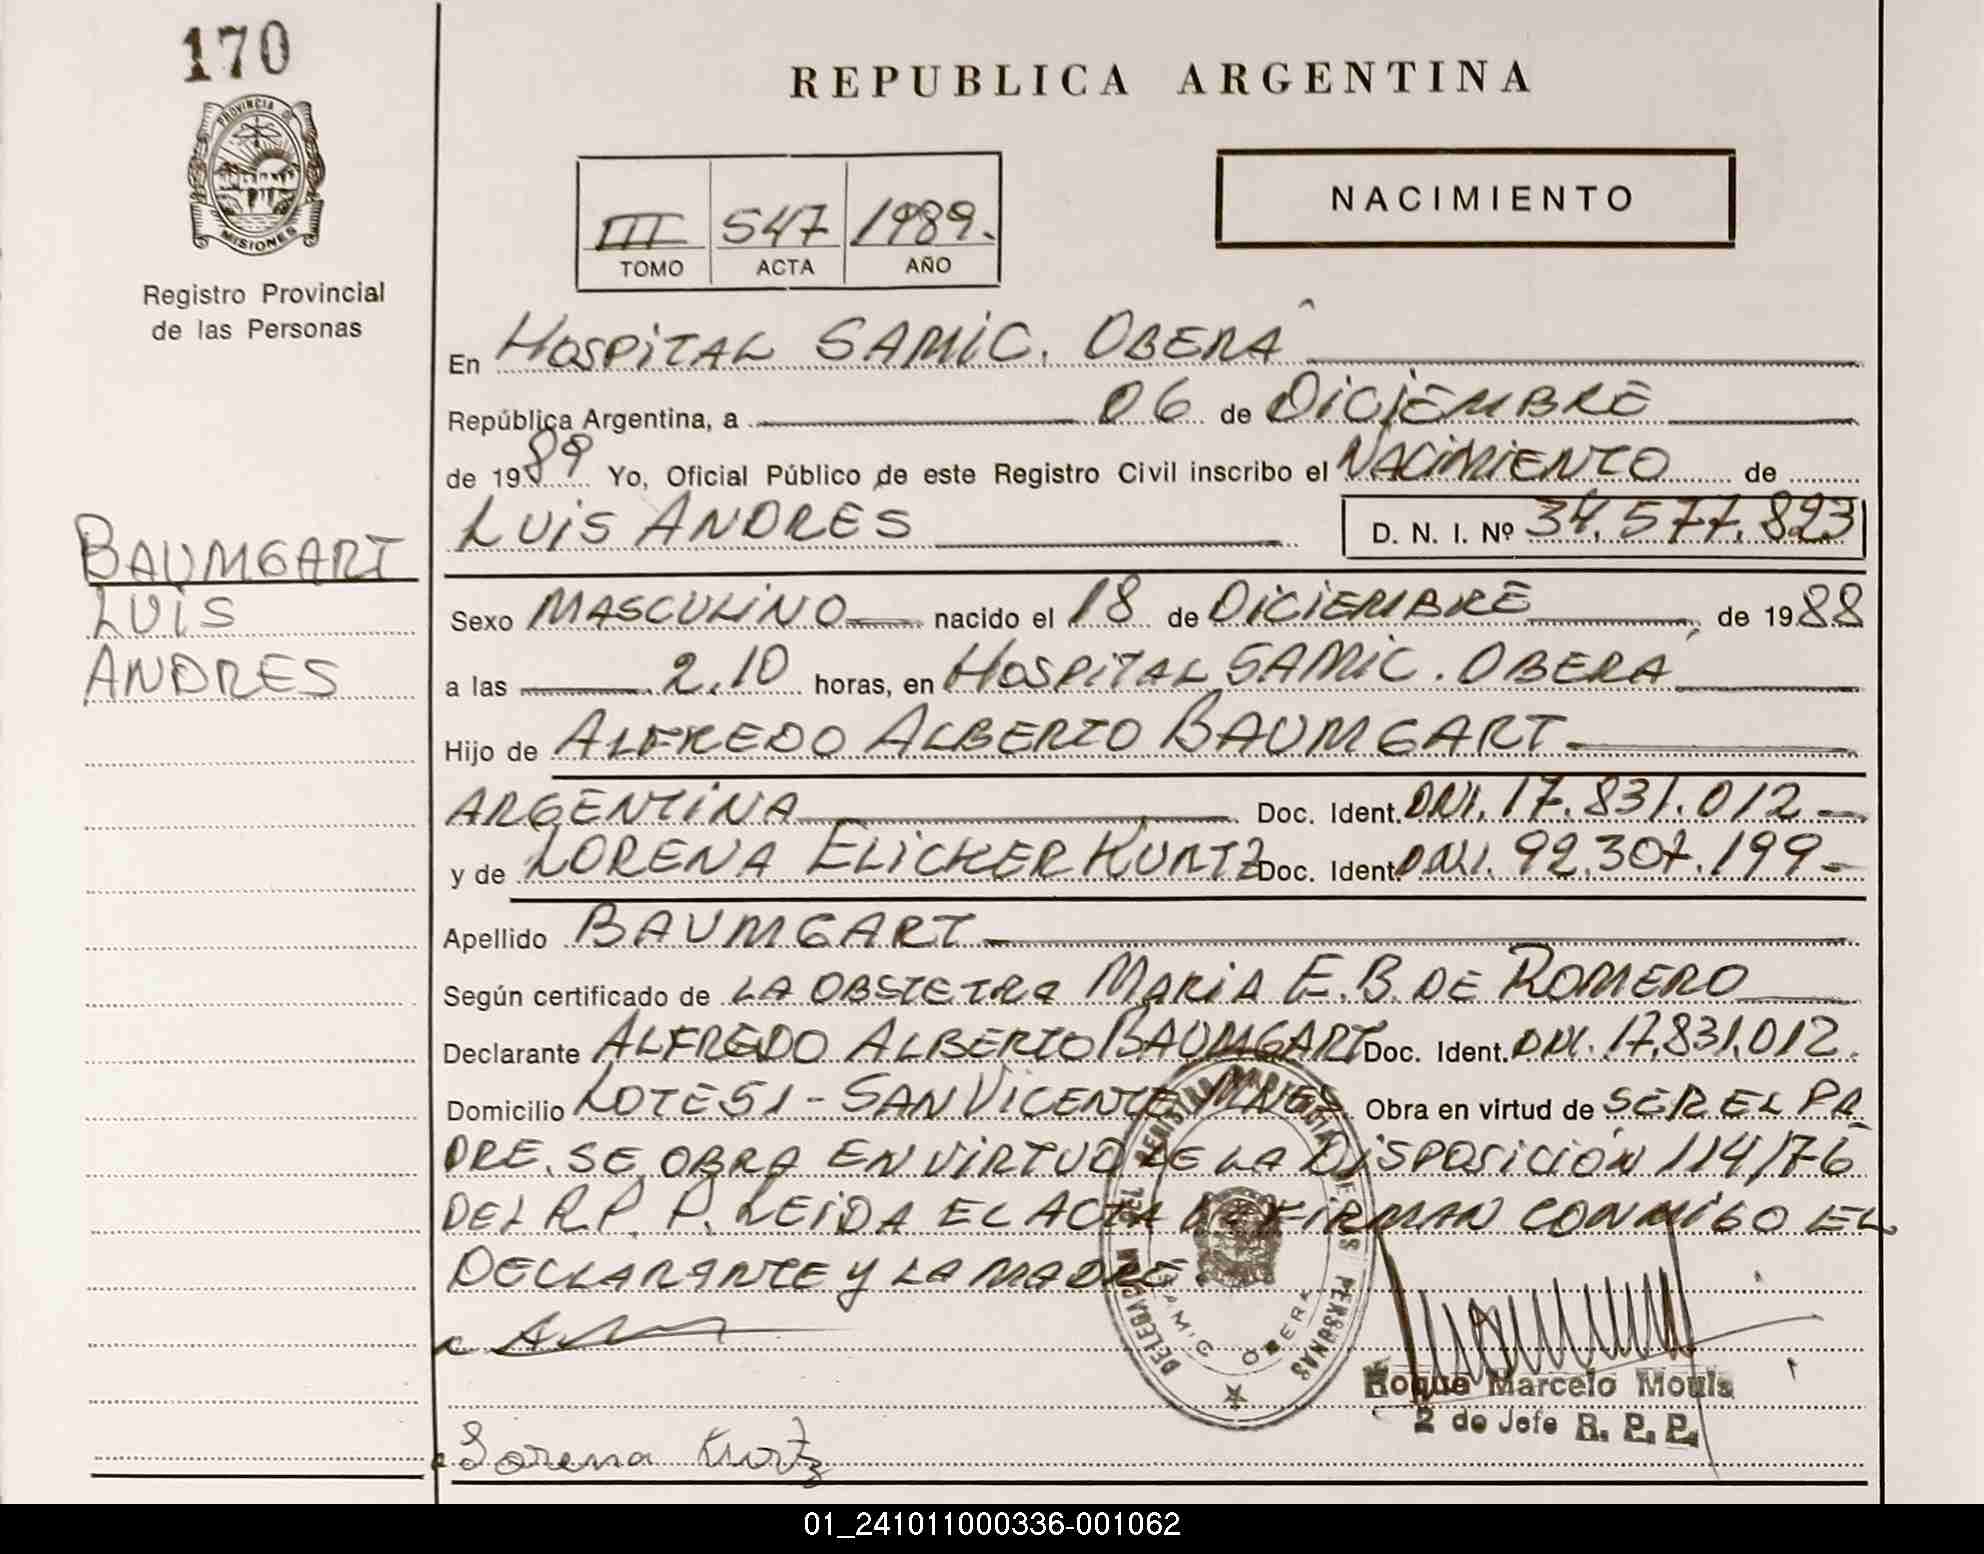 170
PROVINCIA DE
MISIONES
Registro Provincial
de las Personas
BAUMGART
LUIS
ANDRES
REPUBLICA ARGENTINA
NACIMIENTO
III 547 1989.
TOMO ACTA AÑO
En HOSPITAL SAMIC. OBERA
República Argentina, a 06 de DICIEMBRE
de 1989 Yo, Oficial Público de este Registro Civil inscribo el NACIMIENTO de
LUIS ANDRES D. N. I. Nº 34.577.823
Sexo MASCULINO nacido el 18 de DICIEMBRE, de 1988
a las 2.10 horas, en HOSPITAL SAMIC. OBERA
Hijo de ALFREDO ALBERTO BAUMGART
ARGENTINA Doc. Ident. DNI. 17.831.012-
y de LORENA ELICKER KURTZ Doc. Ident. DNI. 92.307.199-
Apellido BAUMGART
Según certificado de LA OBSTETRA MARIA E.B. DE ROMERO
Declarante ALFREDO ALBERTO BAUMGART Doc. Ident. DNI. 17.831.012.
Domicilio LOTE 51 - SAN VICENTE MNES Obra en virtud de SER EL PA
DRE. SE OBRA EN VIRTUD DE LA DISPOSICIÓN 114/76
DEL R.P. P. LEIDA EL ACTA LA FIRMAN CONMIGO EL
DECLARANTE Y LA MADRE.
DELEGACION DEL REGISTRO PROVINCIAL DE LAS PERSONAS
SAMIC OBERA
Roque Marcelo Mouls
2 do Jefe R. P. P.
Lorena Kurtz
01_241011000336-001062